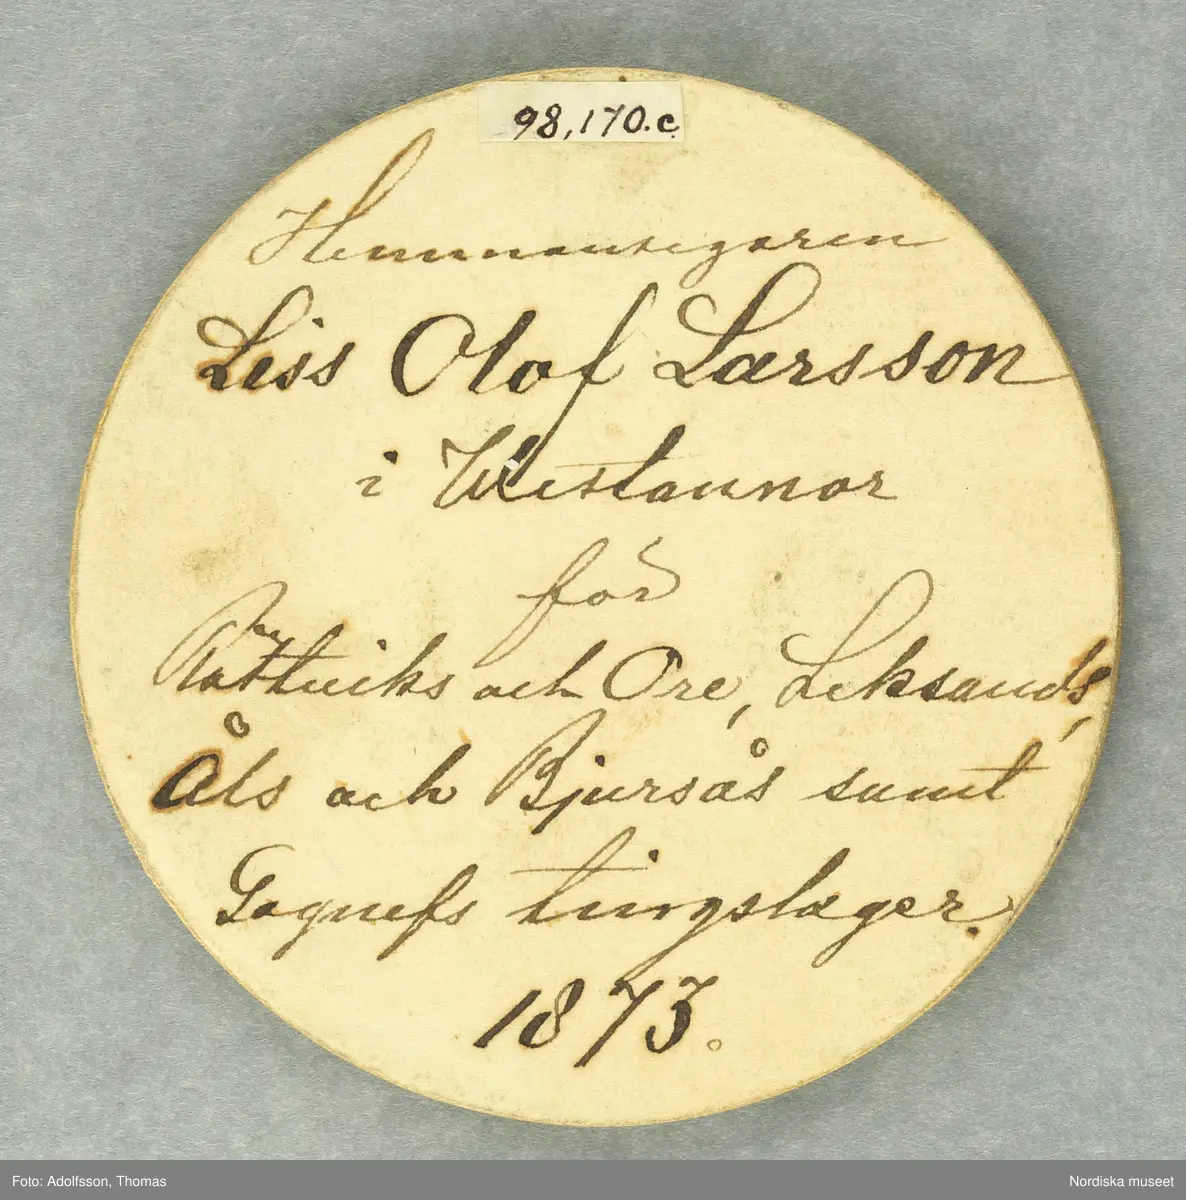 98,170.c.
Hemmansegaren
Liss Olof Larsson
i Westannor
för
Rättviks och Ore, Leksands,
Åls och Bjursås samt
Gagnefs tingslager.
1873.
Foto: Adolfsson, Thomas
Nordiska museet